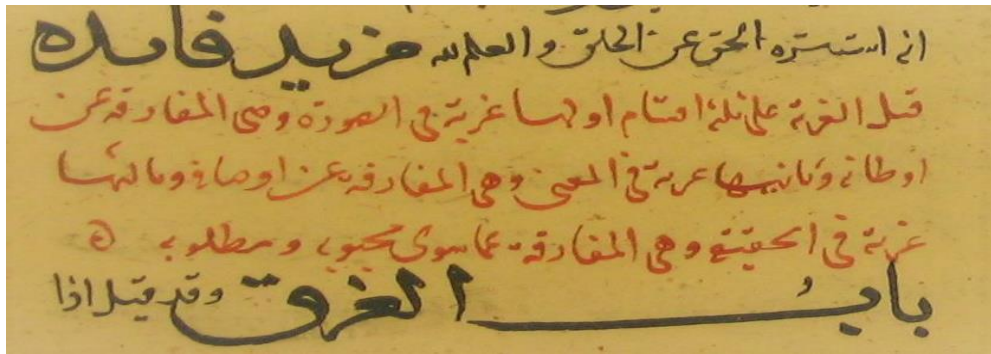 انه استستره الحق عن الخلق والعلم لله مزيد فايده
قيل الغربة على ثلثة اقسام اولها غربة في الصورة وهى المفارقة عن
اوطانه وثانيها غربة في المعنى وهى المفارقة عن اوصافه وثالثها
غربة في الحقيقة وهى المفارقة عما سوى محبوبه ومطلوبه ه
باب الغرق وقد قيل اذا